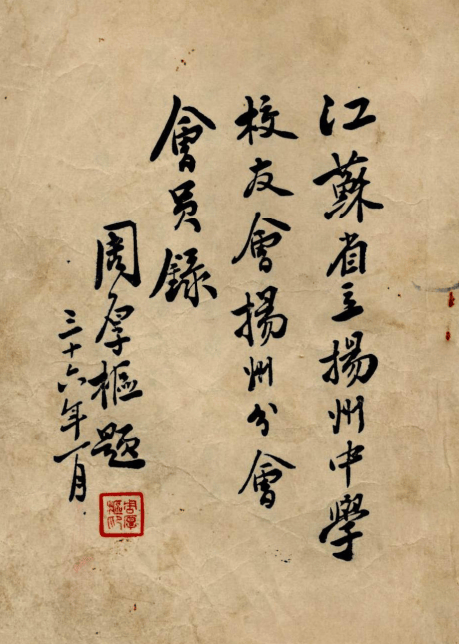 江蘇省立揚州中學
校友會揚州分會
會員錄
周厚樞題
三十六年一月
周厚樞印